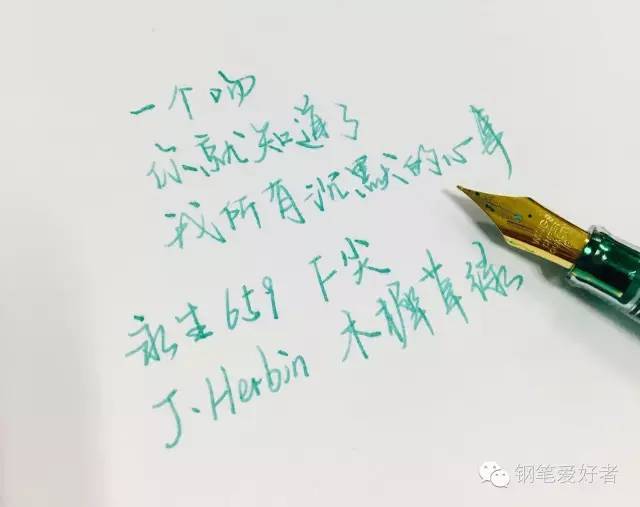 一个吻
你就知道了
我所有沉默的心事
永生659 F尖
J.Herbin 木樨草绿
钢笔爱好者